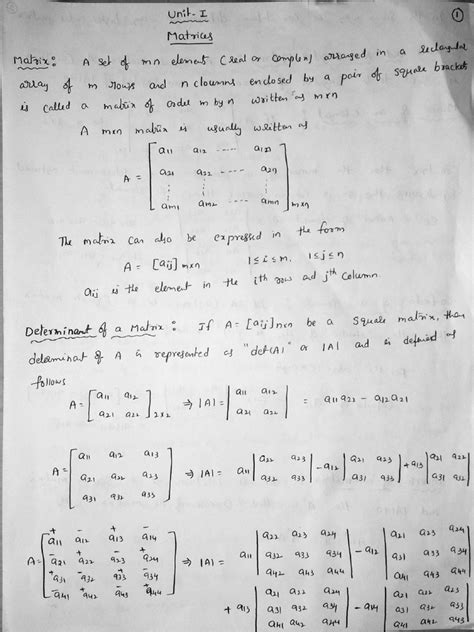 Unit-I
①
Matrices
Matrix: A set of mn element (real or complex) arranged in a rectangular
array of m rows and n cloumns enclosed by a pair of square brackets
is called a matrix of order m by n written as mxn
A mxn matrix is usually written as
A = [ a11 a12 ---- a12n
a21 a22 ---- a2n
⋮ ⋮ ⋮
am1 am2 ---- amn ] mxn
The matrix can also be expressed in the form
A = [aij] mxn 1≤i≤m, 1≤j≤n
aij is the element in the ith row ad jth Column.
Determinant of a Matrix: If A=[aij]nxn be a square matrix, then
determinat of A is represented as "det(A)" or |A| and is defined as
follows
A = [ a11 a12 ⇒ |A| = | a11 a12 | = a11 a22 - a12 a21
a21 a22 ] 2x2 | a21 a22 |
A = [ a11 a12 a13
a21 a22 a23 ⇒ |A| = a11 | a22 a23 | - a12 | a21 a23 | + a13 | a21 a22 |
a31 a32 a33 ] | a32 a33 | | a31 a33 | | a31 a32 |
A = [ +a11 -a12 +a13 -a14
-a21 +a22 -a23 +a24
+a31 -a32 +a33 -a34
-a41 +a42 -a43 +a44 ] ⇒ |A| = a11 | a22 a23 a24 | - a12 | a21 a23 a24 |
| a32 a33 a34 | | a31 a33 a34 |
| a42 a43 a44 | | a41 a43 a44 |
+ a13 | a21 a22 a24 | - a14 | a21 a22 a23 |
| a31 a32 a34 | | a31 a32 a33 |
| a41 a42 a44 | | a41 a42 a43 |